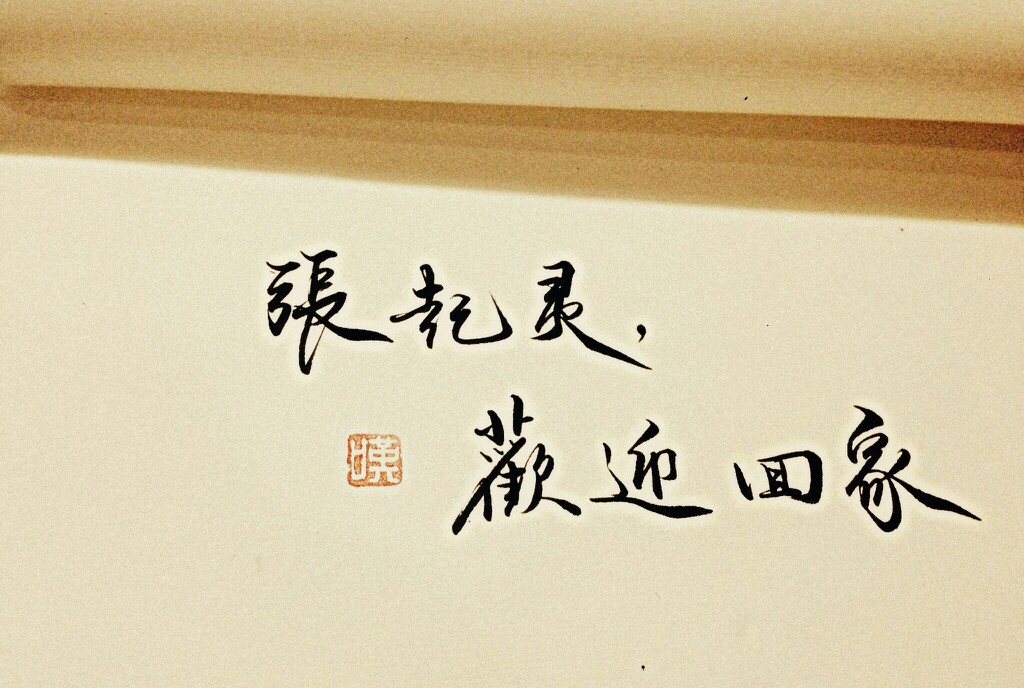 張起灵，
歡迎回家